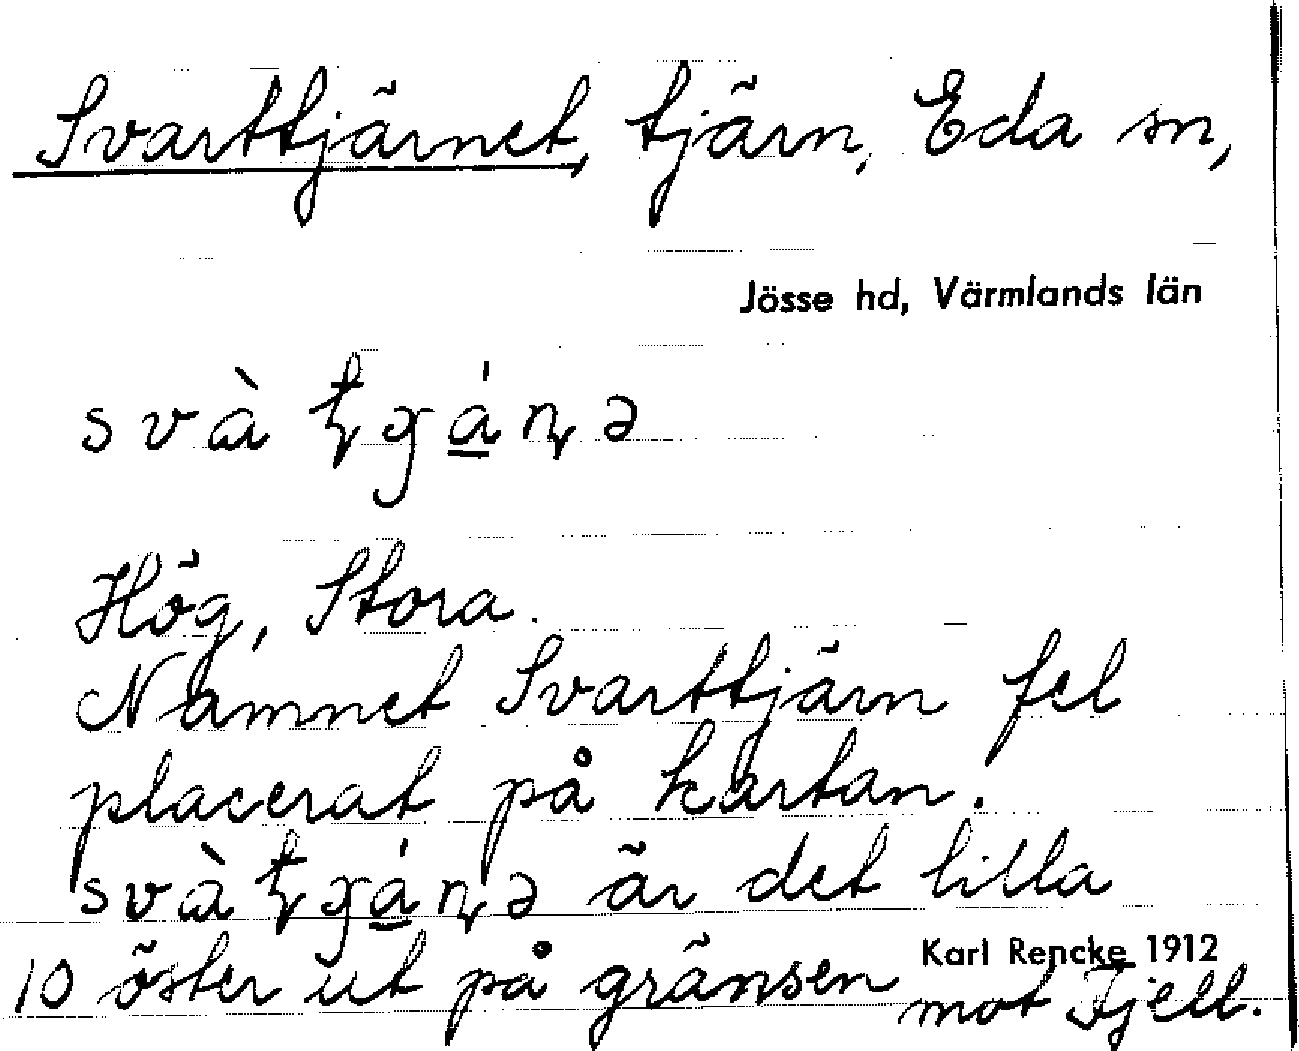 Svarttjärnet, tjärn, Eda sn,
Jössе hd, Värmlands län
svà ʈɡá̱ɳə
Hög, Stora.
Namnet Svarttjärn fel
placerat på kartan.
svàʈɡá̱ɳə är det lilla
10 öster ut på gränsen mot Fjell.
Karl Rencke 1912